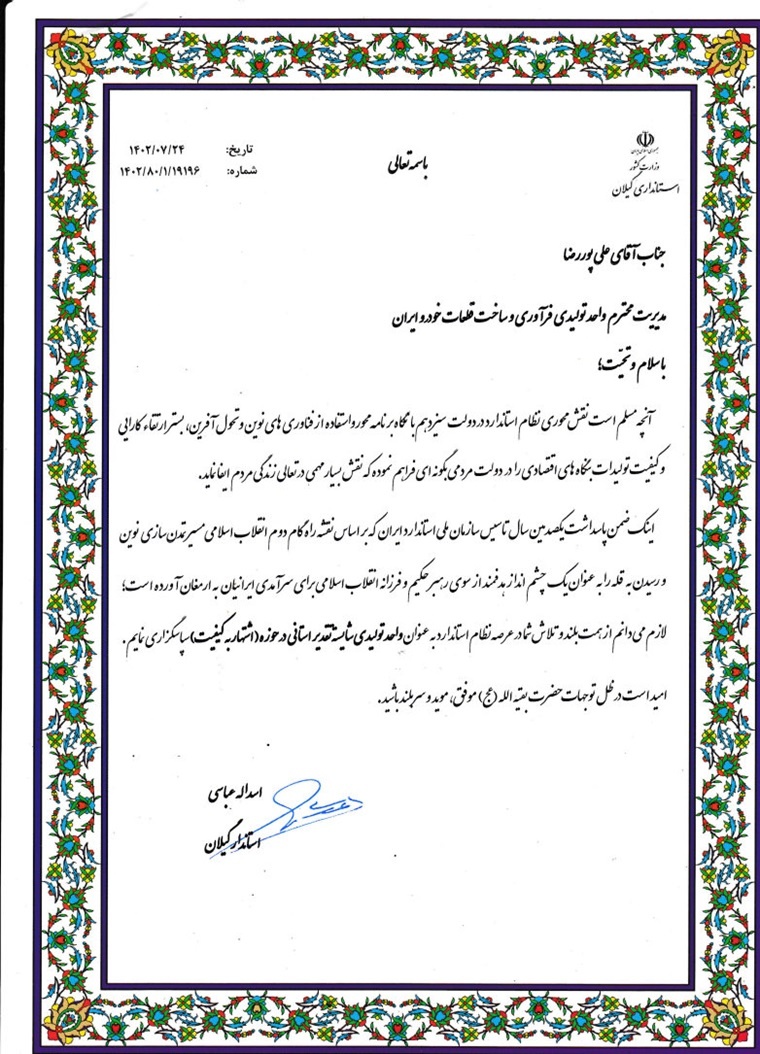 جمهوری اسلامی ایران
وزارت کشور
استانداری گیلان
باسمه تعالی
تاریخ: ۱۴۰۲/۰۷/۲۴
شماره: ۱۴۰۲/۸۰/۱/۱۹۱۹۶
جناب آقای علی پوررضا
مدیریت محترم واحد تولیدی فرآوری و ساخت قطعات خودرو ایران
با سلام و تحیّت؛
آنچه مسلم است نقش محوری نظام استاندارد در دولت سیزدهم با نگاه برنامه محور و استفاده از فناوری های نوین و تحول آفرین، بستر ارتقاء کارایی
و کیفیت تولیدات بنگاه های اقتصادی را در دولت مردمی بگونه ای فراهم نموده که نقش بسیار مهمی در تعالی زندگی مردم ایفا نماید.
اینک ضمن پاسداشت یکصدمین سال تاسیس سازمان ملی استاندارد ایران که بر اساس نقشه راه گام دوم انقلاب اسلامی مسیر تمدن سازی نوین
و رسیدن به قله را به عنوان یک چشم انداز هدفمند از سوی رهبر حکیم و فرزانه انقلاب اسلامی برای سرآمدی ایرانیان به ارمغان آورده است؛
لازم می دانم از همت بلند و تلاش شما در عرصه نظام استاندارد به عنوان واحد تولیدی شایسته تقدیر استانی در حوزه (اشتهار به کیفیت) سپاسگزاری نمایم.
امید است در ظل توجهات حضرت بقیه الله (عج) موفق، موید و سربلند باشید.
اسداله عباسی
استاندار گیلان